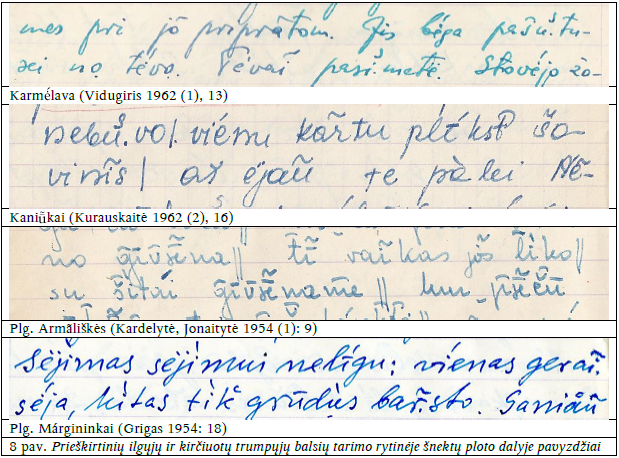 mes pri jõ pripràtom. Jis bėga pašũ.tu-
sei no tėvo. Tėvaĩ pasi.metė. Stovėjo žo-
Karmė́lava (Vidugiris 1962 (1), 13)
viénu kar̃tu plė́kst šo-
vinĩs| aš ėjaũ te pàlei Nė̃-
Kaniū̃kai (Kurauskaitė 1962 (2), 16)
no gīvẽna|| tiẽ vaĩkas jõs lìko||
su šìtai gīvẽname||
Plg. Armãliškės (Kardelytė, Jonaitytė 1954 (1): 9)
Sėjimas sėjimui nelīgu; vienas geraĩ.
sėja, kitas tik grūdus bar̃.sto.
Plg. Márgininkai (Grigas 1954: 18)
8 pav. Prieškirtinių ilgųjų ir kirčiuotų trumpųjų balsių tarimo rytinėje šnektų ploto dalyje pavyzdžiai